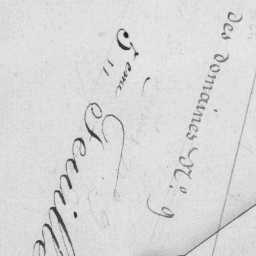 des domaines N.º 9
5.eme Feuille